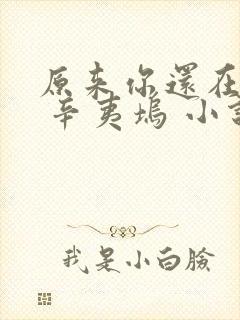 原来你還在
辛夷塢 小
我是小白臉